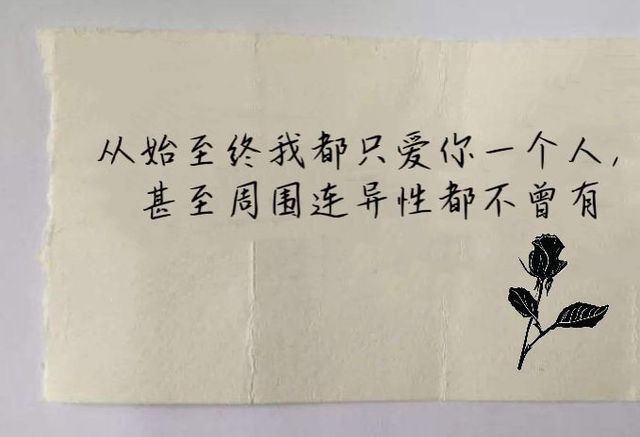 从始至终我都只爱你一个人，
甚至周围连异性都不曾有